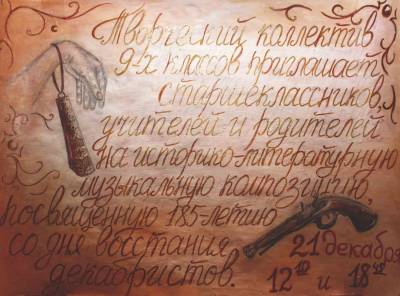 Творческий коллектив
9-х классов приглашает
старшеклассников,
учителей и родителей
на историко-литературную
музыкальную композицию,
посвященную 185-летию
со дня восстания
декабристов.
21 декабря
12 10 и 18 00